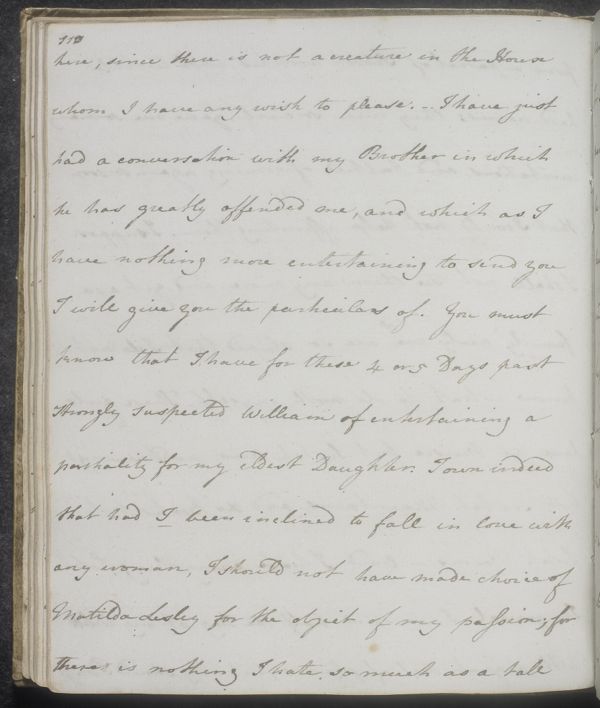 118
here, since there is not a creature in the House
whom I have any wish to please. - I have just
had a conversation with my Brother in which
he has greatly offended me, and which as I
have nothing more entertaining to send you
I will give you the particulars of. You must
know that I have for these 4 or 5 Days past
strongly suspected William of entertaining a
partiality for my eldest Daughter. I own indeed
that had I been inclined to fall in love with
any woman, I should not have made choice of
Matilda Lesley for the object of my passion; for
there is nothing I hate so much as a tall